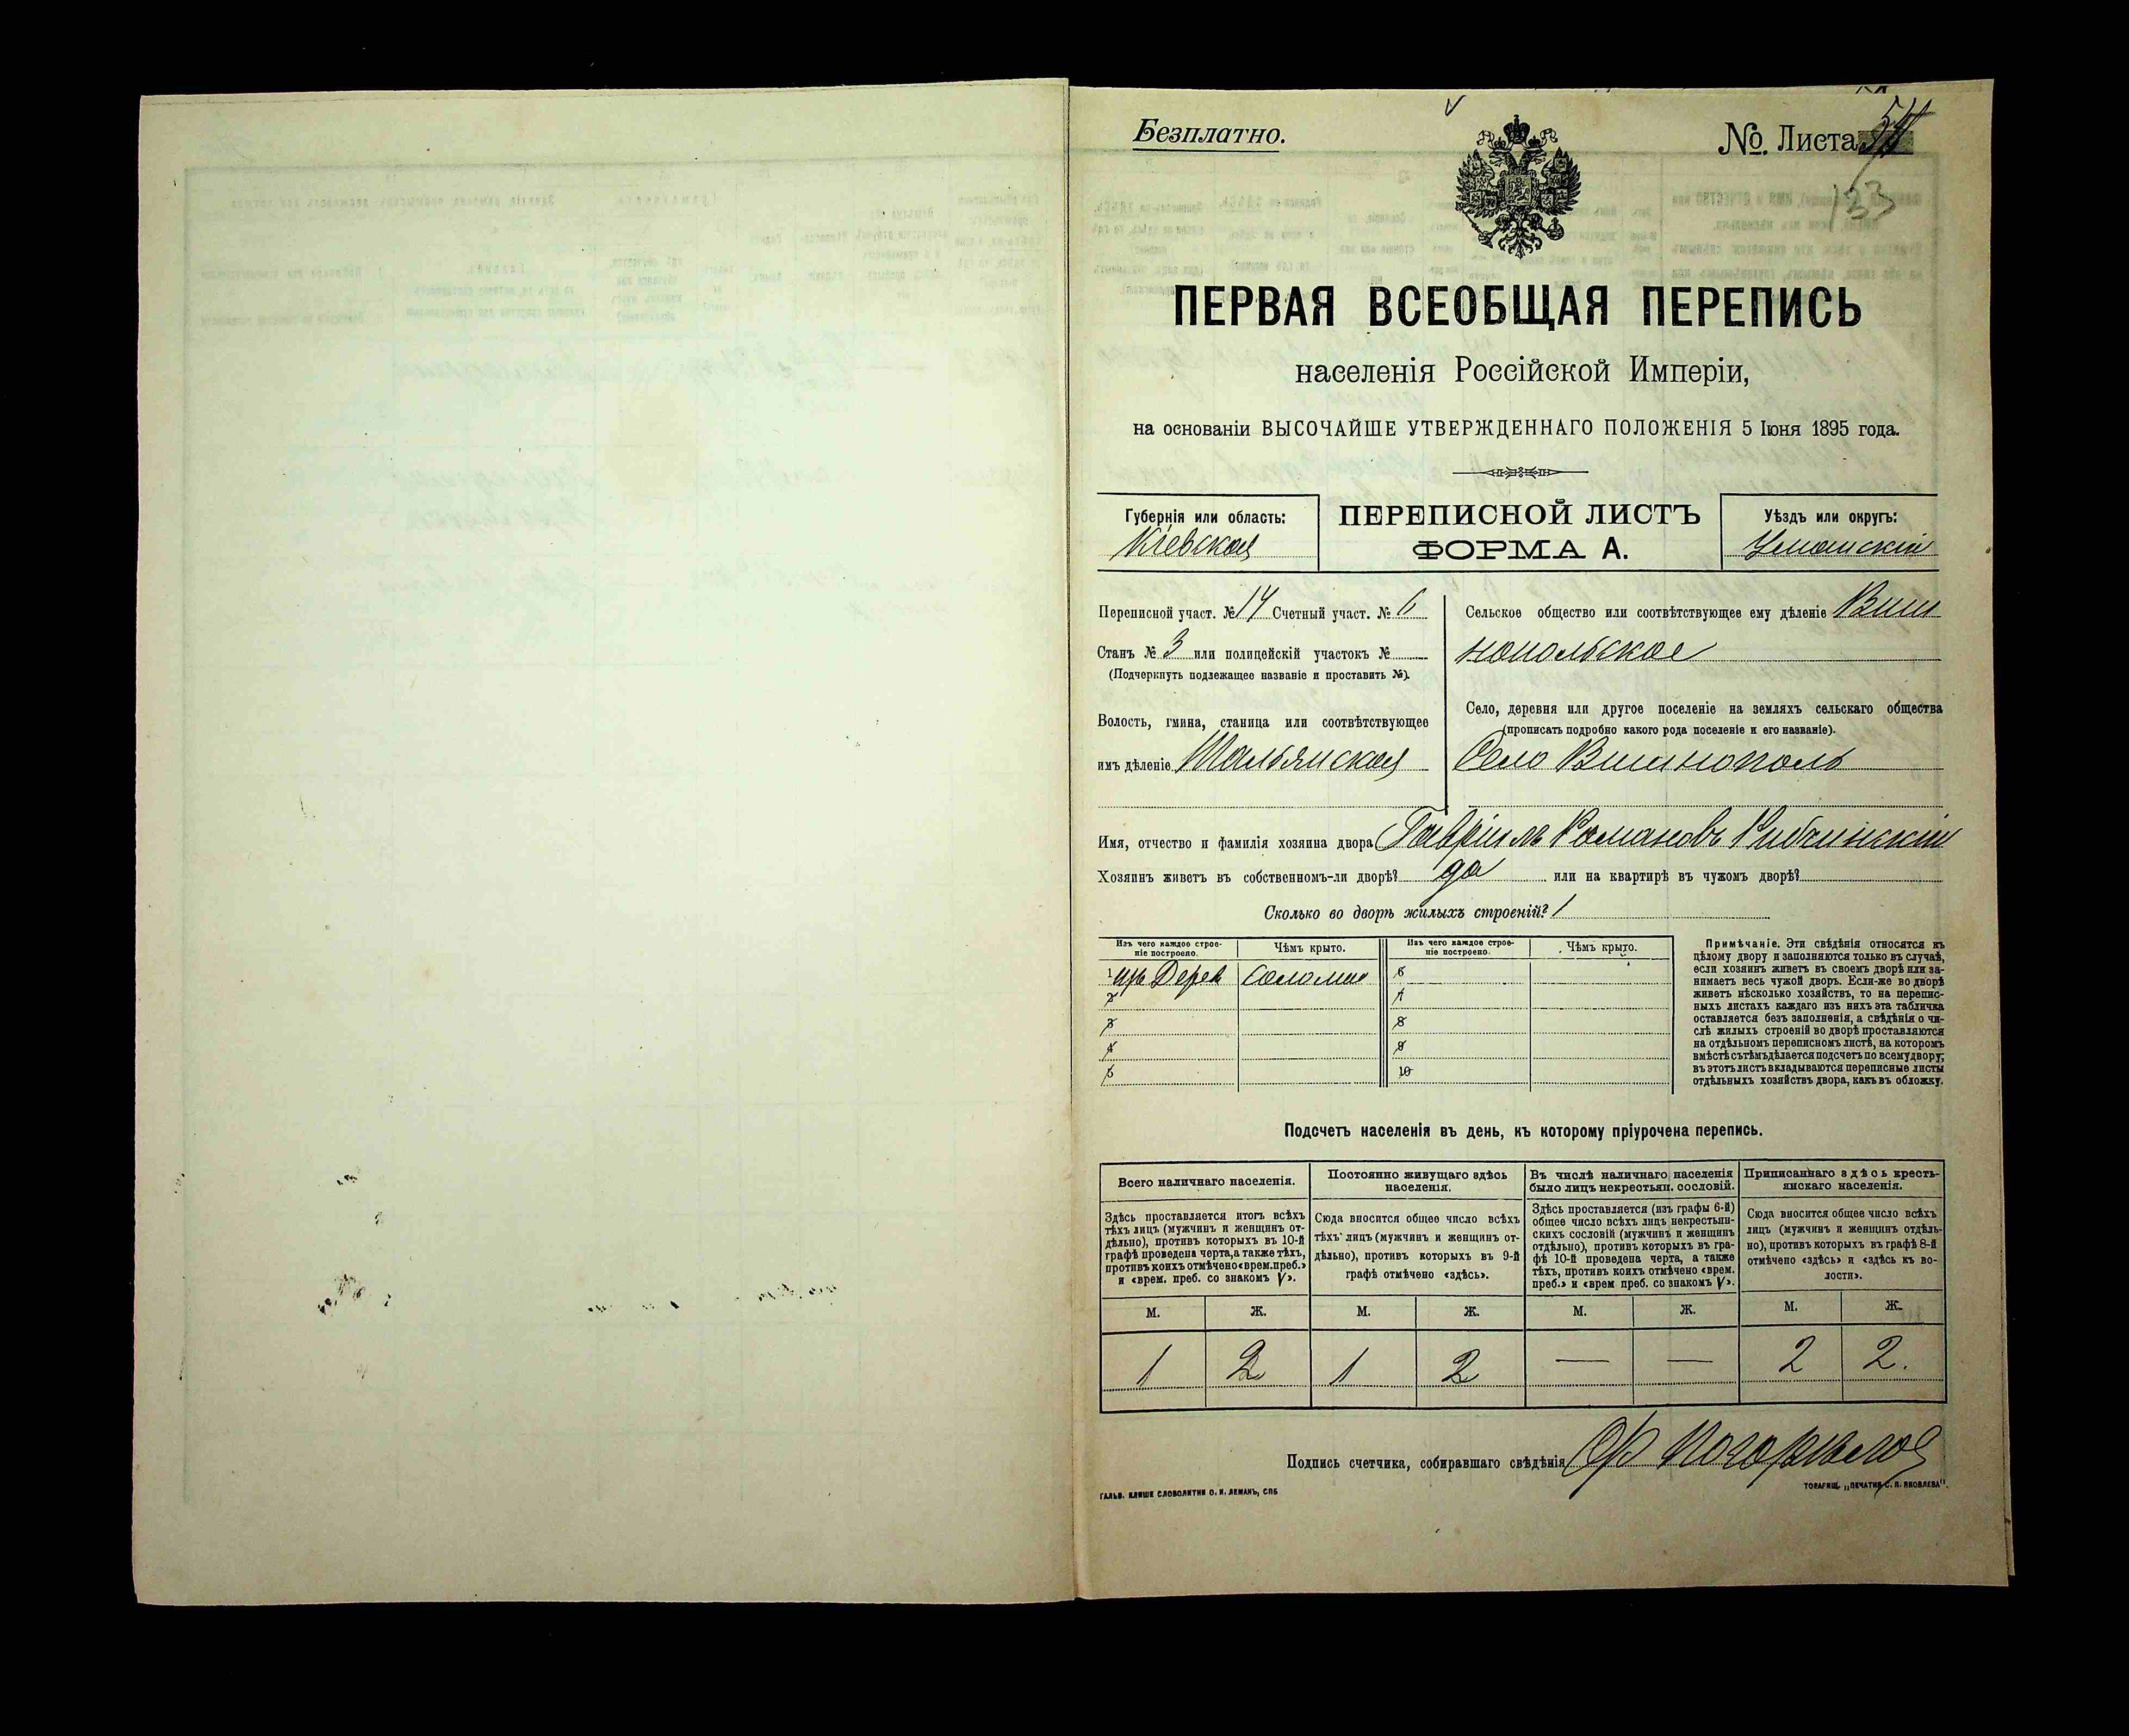 Безплатно.
№. Листа 54
133
ПЕРВАЯ ВСЕОБЩАЯ ПЕРЕПИСЬ
населенія Россійской Имперіи,
на основаніи ВЫСОЧАЙШЕ УТВЕРЖДЕННАГО ПОЛОЖЕНІЯ 5 Іюня 1895 года.
Губернія или область:
Кіевская
ПЕРЕПИСНОЙ ЛИСТЪ
ФОРМА А.
Уѣздъ или округъ:
Уманскій
Переписной участ. № 14 Счетный участ. № 6
Станъ № 3 или полицейскій участокъ №
(Подчеркнуть подлежащее названіе и проставить №).
Волость, гмина, станица или соотвѣтствующее
имъ дѣленіе Тальянская
Сельское общество или соотвѣтствующее ему дѣленіе Виш
нопольское
Село, деревня или другое поселеніе на земляхъ сельскаго общества
(прописать подробно какого рода поселеніе и его названіе).
Село Вишнополь
Имя, отчество и фамилія хозяина двора Гавріилъ Романовъ Рибчинскій
Хозяинъ живетъ въ собственномъ-ли дворѣ? да или на квартирѣ въ чужомъ дворѣ?
Сколько во дворѣ жилыхъ строеній? 1
Изъ чего каждое строе-
ніе построено.
Чѣмъ крыто.
Изъ чего каждое строе-
ніе построено.
Чѣмъ крыто.
1 изъ Дерев Соломы 6
2 7
3 8
4 9
5 10
Примѣчаніе. Эти свѣдѣнія относятся къ
цѣлому двору и заполняются только въ случаѣ,
если хозяинъ живетъ въ своемъ дворѣ или за-
нимаетъ весь чужой дворъ. Если-же во дворѣ
живетъ нѣсколько хозяйствъ, то на перепис-
ныхъ листахъ каждаго изъ нихъ эта табличка
оставляется безъ заполненія, а свѣдѣнія о чи-
слѣ жилыхъ строеній во дворѣ проставляются
на отдѣльномъ переписномъ листѣ, на которомъ
вмѣстѣ съ тѣмъ дѣлается подсчетъ по всему двору;
въ этотъ листъ вкладываются переписные листы
отдѣльныхъ хозяйствъ двора, какъ въ обложку.
Подсчетъ населенія въ день, къ которому пріурочена перепись.
Всего наличнаго населенія.
Здѣсь проставляется итогъ всѣхъ
тѣхъ лицъ (мужчинъ и женщинъ от-
дѣльно), противъ которыхъ въ 10-й
графѣ проведена черта, а также тѣхъ,
противъ коихъ отмѣчено «врем. преб.»
и «врем. преб. со знакомъ V».
Постоянно живущаго здѣсь
населенія.
Сюда вносится общее число всѣхъ
тѣхъ лицъ (мужчинъ и женщинъ от-
дѣльно), противъ которыхъ въ 9-й
графѣ отмѣчено «здѣсь».
Въ числѣ наличнаго населенія
было лицъ некрестьян. сословій.
Здѣсь проставляется (изъ графы 6-й)
общее число всѣхъ лицъ некрестьян-
скихъ сословій (мужчинъ и женщинъ
отдѣльно), противъ которыхъ въ гра-
фѣ 10-й проведена черта, а также
тѣхъ, противъ коихъ отмѣчено «врем.
преб.» и «врем преб. со знакомъ V».
Приписаннаго здѣсь кресть-
янскаго населенія.
Сюда вносится общее число всѣхъ
лицъ (мужчинъ и женщинъ отдѣль-
но), противъ которыхъ въ графѣ 8-й
отмѣчено «здѣсь» и «здѣсь къ во-
лости».
М. Ж. М. Ж. М. Ж. М. Ж.
1 2 1 2 — — 2 2.
Подпись счетчика, собиравшаго свѣдѣнія
ГАЛЬВ. КЛИШЕ СЛОВОЛИТНИ О. И. ЛЕМАНЪ, СПБ
ТОВАРИЩ. „ПЕЧАТНЯ С. П. ЯКОВЛЕВА".